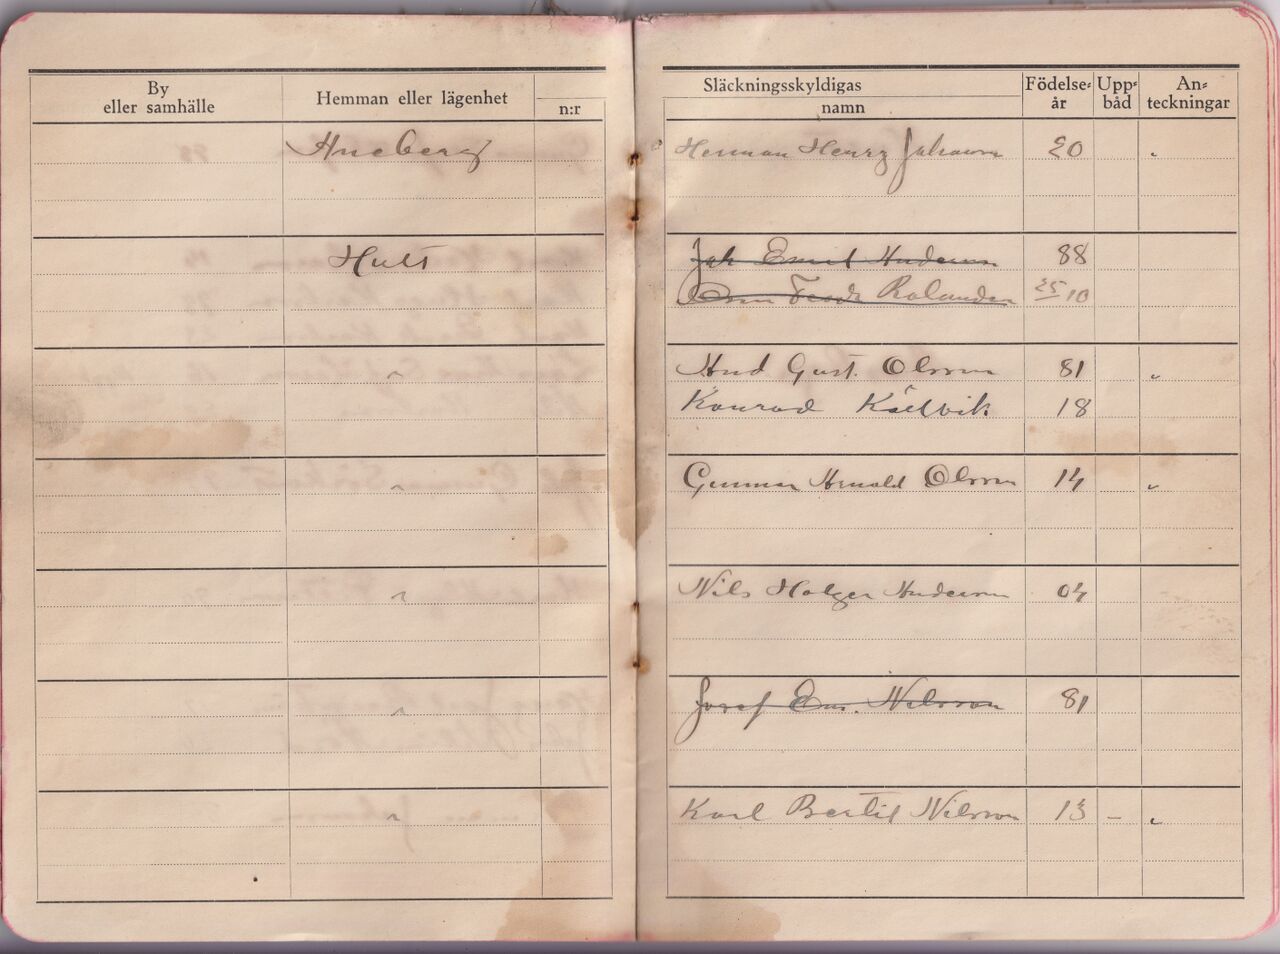 By
eller samhälle
Hemman eller lägenhet
n:r
Släckningsskyldigas
namn
Födelse-
år
Upp-
båd
An-
teckningar
Aneberg Herman Henry Johanson 20 "
Hult Joh Emil Anderson 88
Rolander 25 10
" And Gust. Olsson 81 "
Konrad Källvik 18
" Gunnar Arnold Olsson 14 "
" Nils Holger Anderson 04
" Josef Em. Nilsson 81
" Karl Bertil Nilsson 13 – "